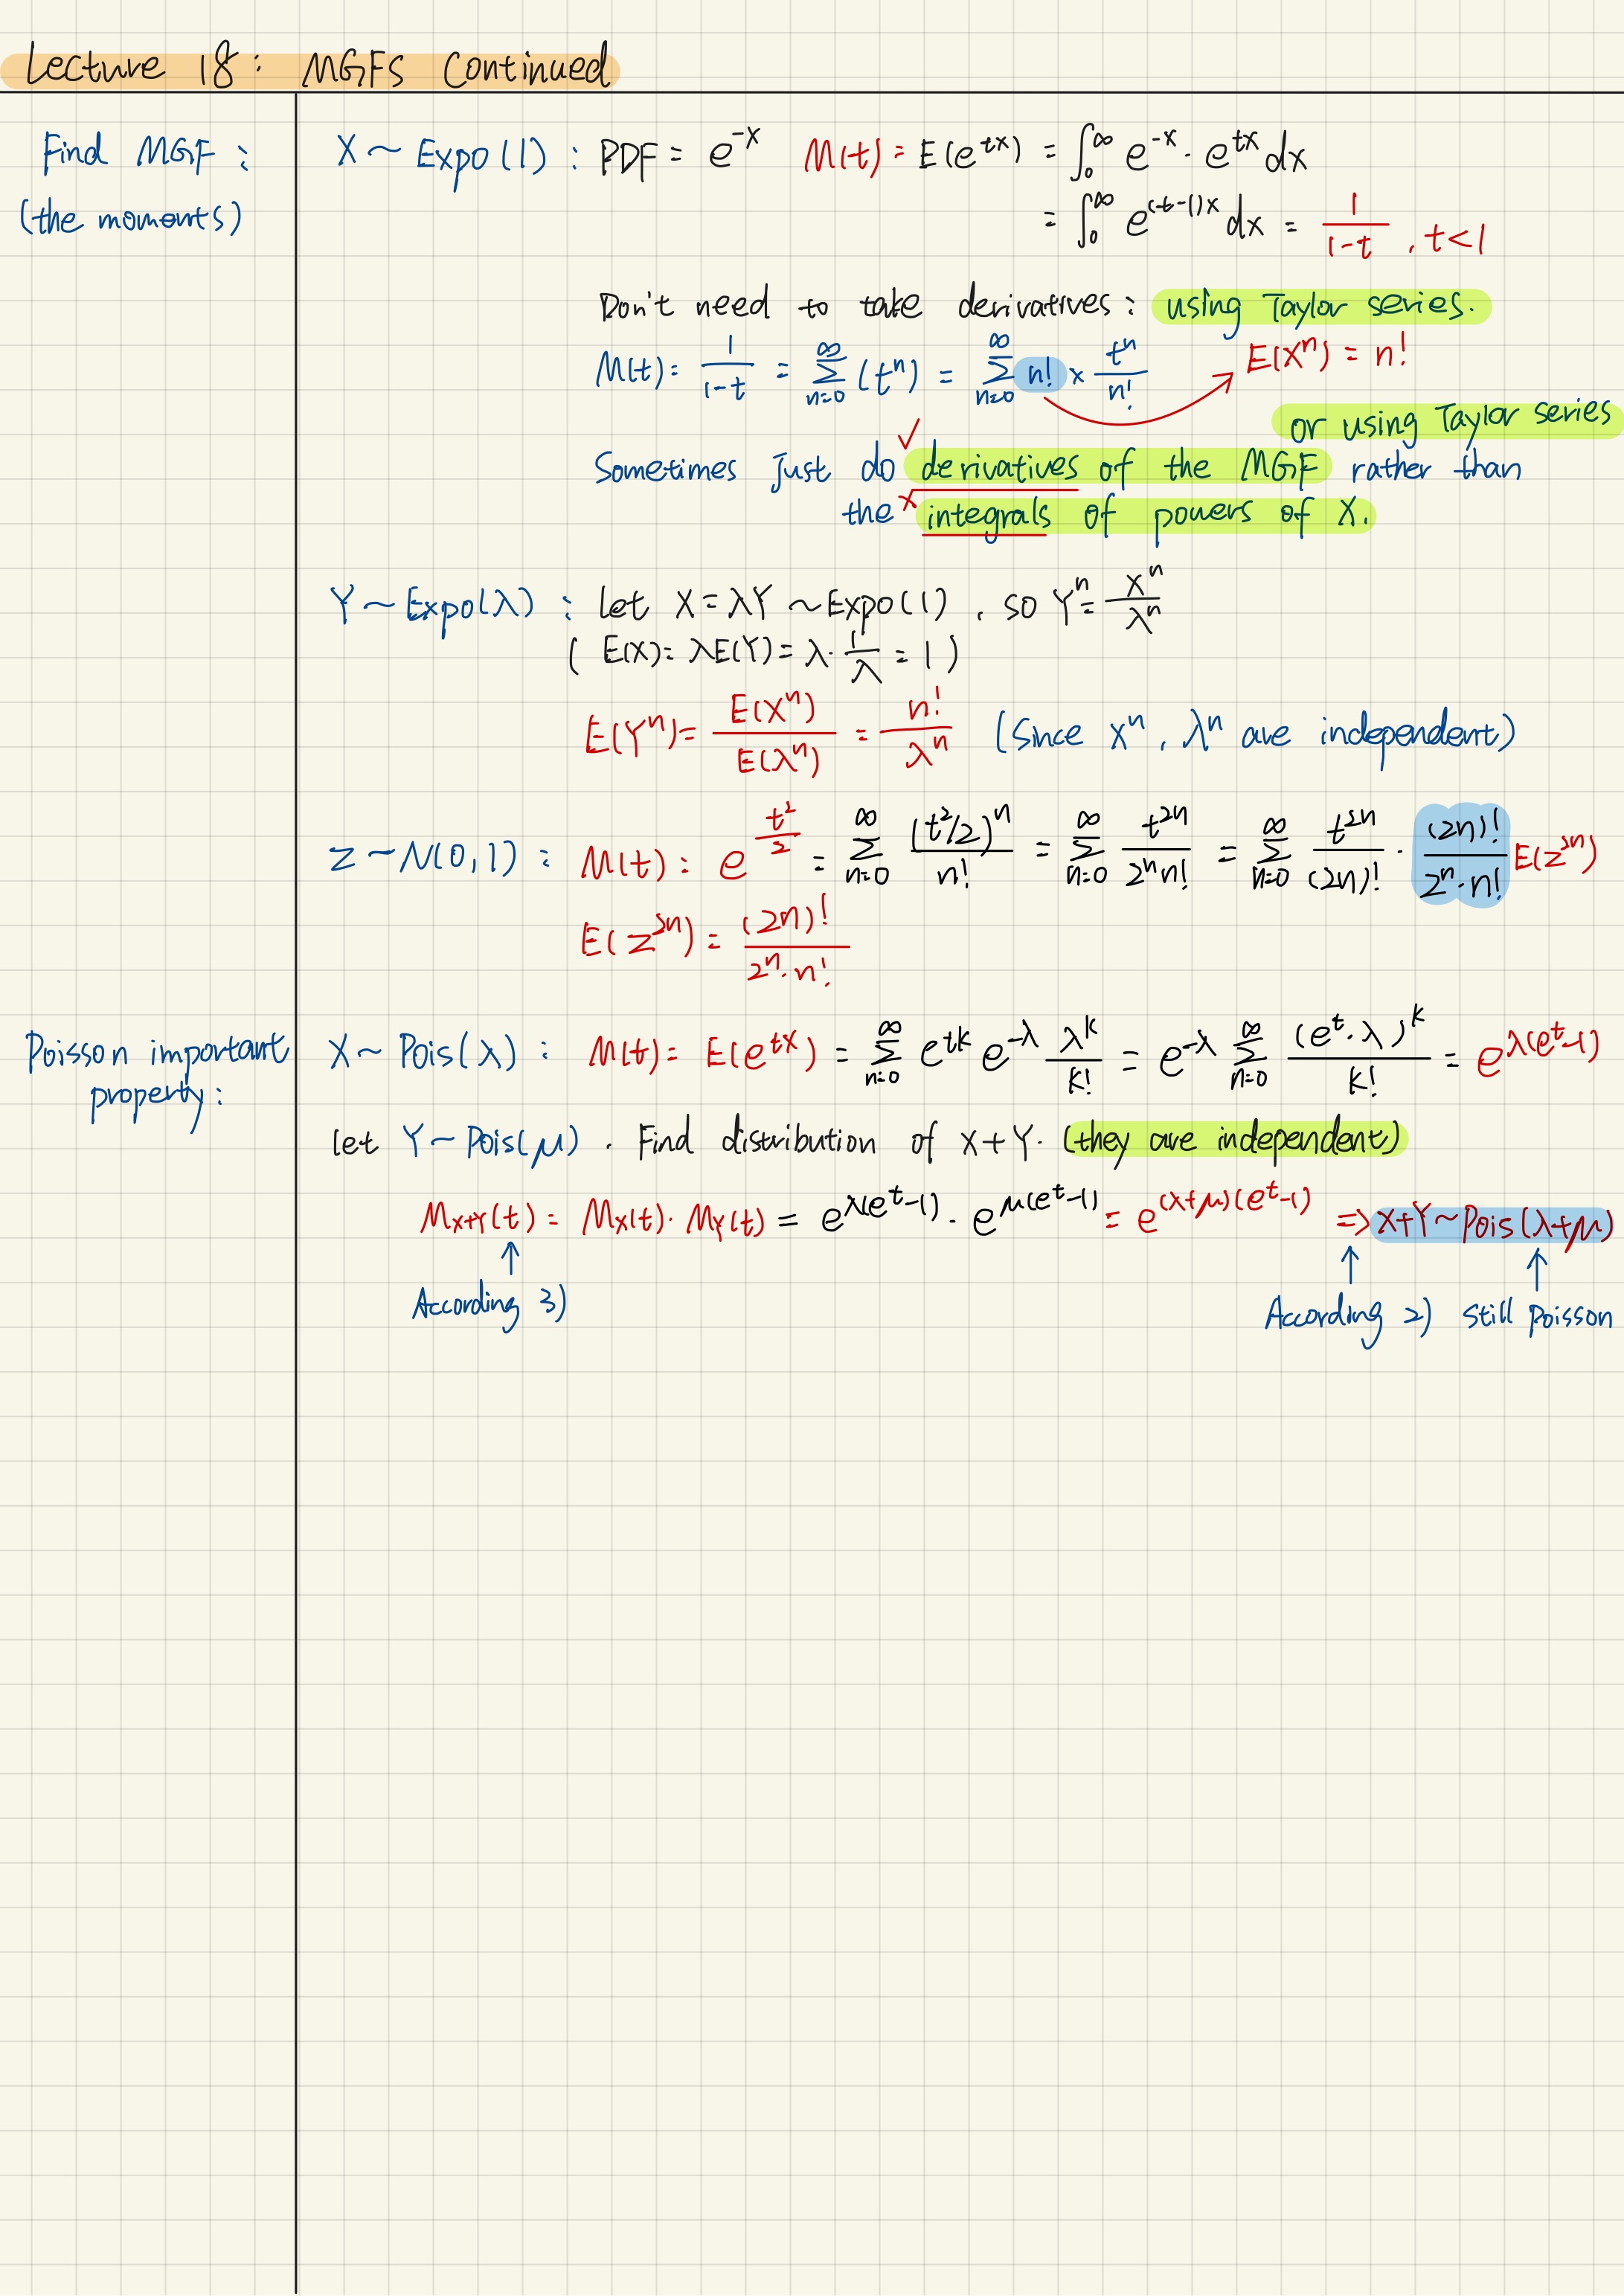 Lecture 18: MGFs Continued
Find MGF:
(the moments)
X ~ Expo(1): PDF = e^{-x} M(t) = E(e^{tx}) = ∫_0^∞ e^{-x} · e^{tx} dx
= ∫_0^∞ e^{(t-1)x} dx = \frac{1}{1-t}, t<1
Don't need to take derivatives: using Taylor series.
M(t) = \frac{1}{1-t} = \sum_{n=0}^{∞} (t^n) = \sum_{n=0}^{∞} n! × \frac{t^n}{n!} E(X^n) = n!
or using Taylor series
Sometimes just do ✓ derivatives of the MGF rather than
the × integrals of powers of X.
Y ~ Expo(λ): let X = λY ~ Expo(1), so Y^n = \frac{X^n}{λ^n}
( E(X) = λE(Y) = λ · \frac{1}{λ} = 1 )
E(Y^n) = \frac{E(X^n)}{E(λ^n)} = \frac{n!}{λ^n} (Since X^n, λ^n are independent)
Z ~ N(0,1): M(t): e^{\frac{t^2}{2}} = \sum_{n=0}^{∞} \frac{(t^2/2)^n}{n!} = \sum_{n=0}^{∞} \frac{t^{2n}}{2^n n!} = \sum_{n=0}^{∞} \frac{t^{2n}}{(2n)!} · \frac{(2n)!}{2^n · n!} E(Z^{2n})
E(Z^{2n}) = \frac{(2n)!}{2^n · n!}
Poisson important
property:
X ~ Pois(λ): M(t) = E(e^{tX}) = \sum_{n=0}^{∞} e^{tk} e^{-λ} \frac{λ^k}{k!} = e^{-λ} \sum_{n=0}^{∞} \frac{(e^t · λ)^k}{k!} = e^{λ(e^t-1)}
let Y ~ Pois(μ). Find distribution of X+Y. (they are independent)
M_{X+Y}(t) = M_X(t) · M_Y(t) = e^{λ(e^t-1)} · e^{μ(e^t-1)} = e^{(λ+μ)(e^t-1)} => X+Y ~ Pois(λ+μ)
↑ ↑ ↑
According 3) According 2) still Poisson